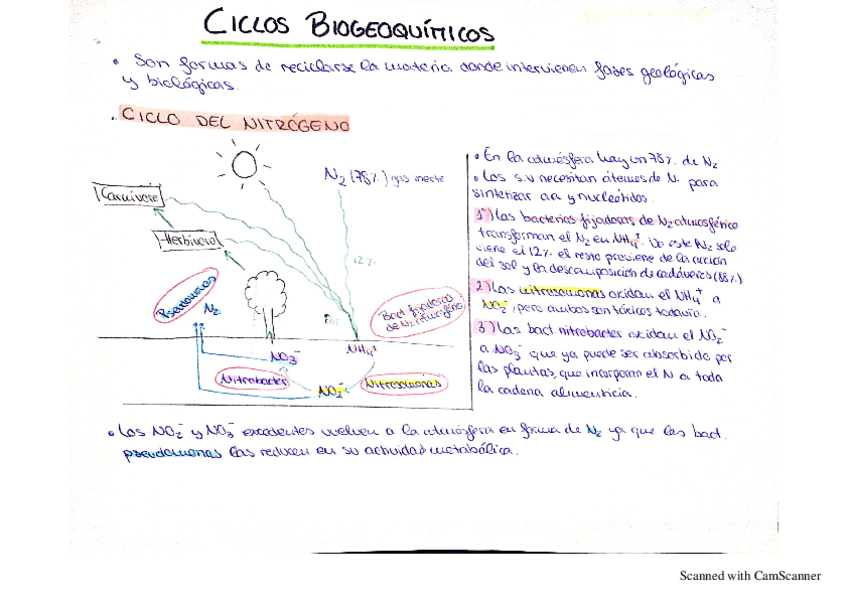 CICLOS BIOGEOQUÍMICOS
• Son formas de reciclarse la materia donde intervienen fases geológicas
y biológicas.
• CICLO DEL NITRÓGENO
N₂ (78%) gas inerte
Carnívoro
Herbívoro
12%
88%
Pseudomonas
N₂
Bact fijadoras
de N₂ atmosférico
NO₃⁻
NH₄⁺
Nitrobacter
NO₂⁻
Nitrosomonas
• En la atmósfera hay un 78% de N₂
• Los s.v necesitan átomos de N. para
sintetizar aa y nucleótidos.
1º) las bacterias fijadoras de N₂ atmosférico
transforman el N₂ en NH₄⁺. De este N₂ solo
viene el 12% el resto proviene de la acción
del sol y la descomposición de cadáveres (88%)
2) Las nitrosomonas oxidan el NH₄⁺ a
NO₂⁻, pero ambos son tóxicos todavía.
3º) las bact nitrobacter oxidan el NO₂⁻
a NO₃⁻ que ya puede ser absorbido por
las plantas, que incorporan el N a toda
la cadena alimenticia.
• Los NO₂⁻ y NO₃⁻ excedentes vuelven a la atmósfera en forma de N₂ ya que las bact.
pseudomonas las reducen en su actividad metabólica.
Scanned with CamScanner